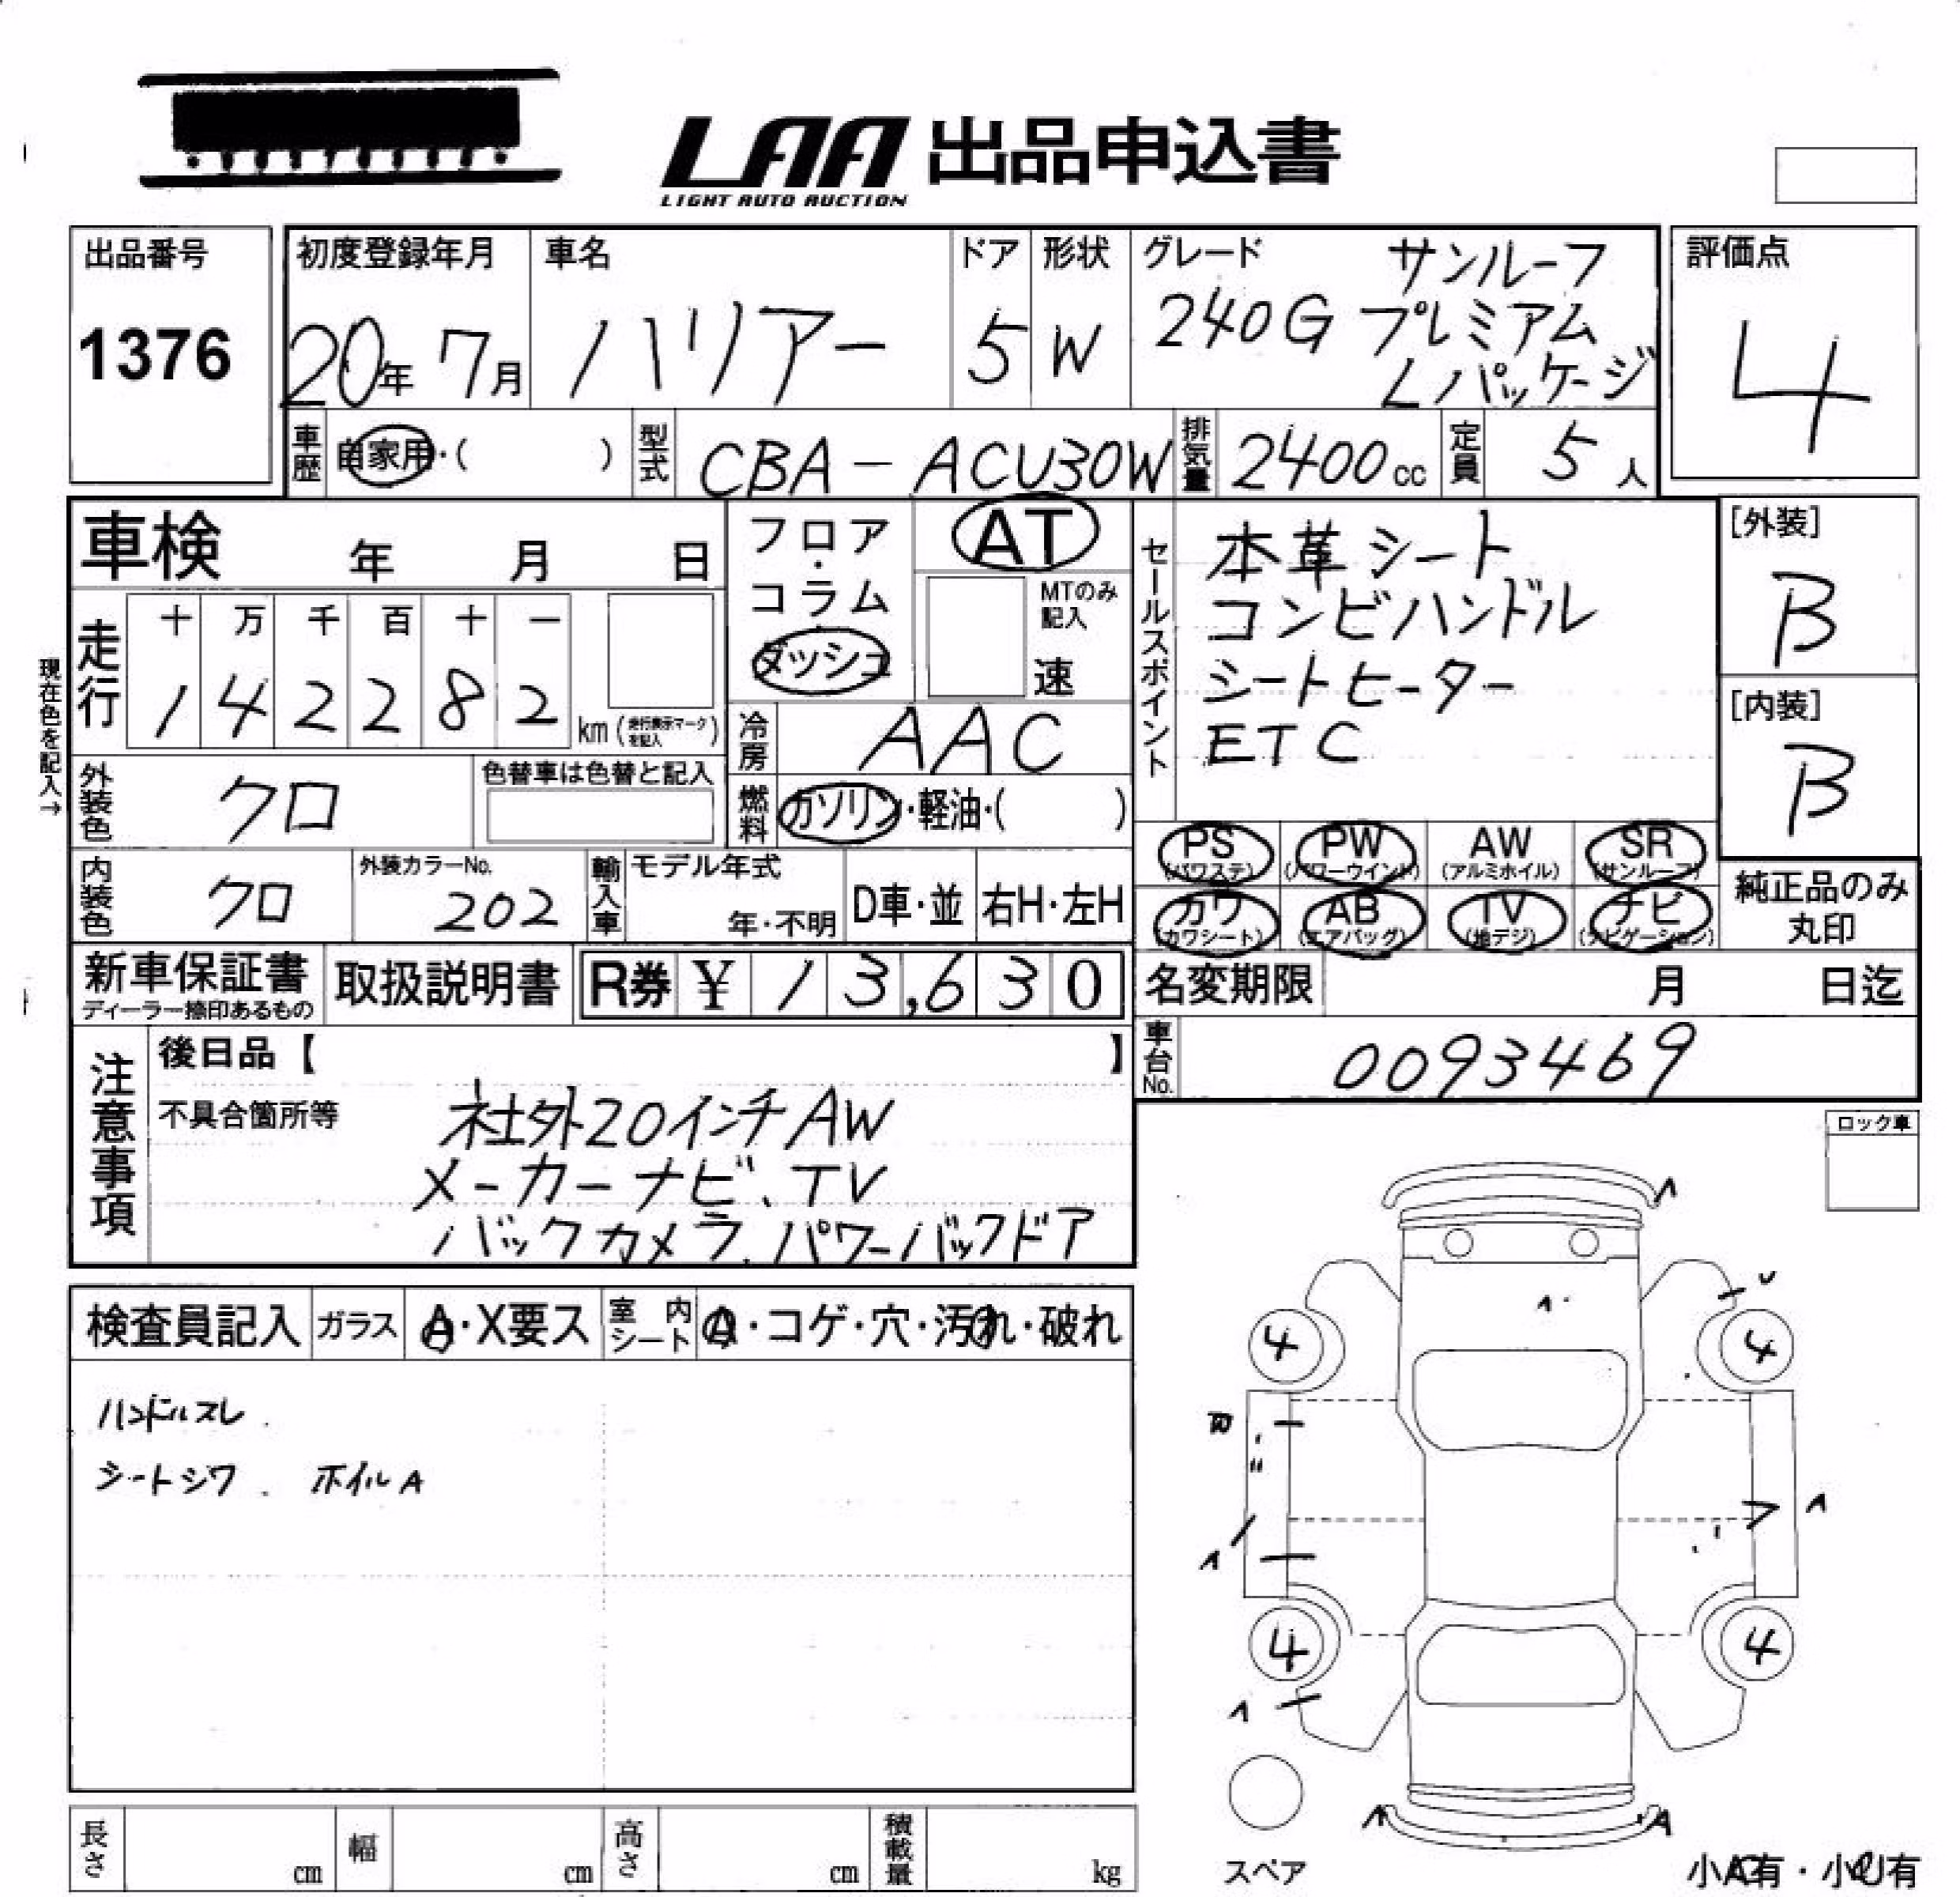 LAA 出品申込書
LIGHT AUTO AUCTION
出品番号
1376
初度登録年月
20年 7月
車名
ハリアー
ドア
5
形状
W
グレード
240G サンルーフ
プレミアム
Lパッケージ
評価点
4
車歴 自家用・( )
型式 CBA-ACU30W
排気量 2400cc
定員 5人
車検 年 月 日
フロア・コラム・ダッシュ
AT
MTのみ記入
速
現在色を記入→
走行
十 万 千 百 十 一
1 4 2 2 8 2 km (走行表示マークを記入)
冷房 AAC
燃料 ガソリン・軽油・( )
外装色 クロ
色替車は色替と記入
内装色 クロ
外装カラーNo. 202
輸入車 モデル年式
年・不明
D車・並
右H・左H
セールスポイント
本革シート
コンビハンドル
シートヒーター
ETC
[外装]
B
[内装]
B
PS (パワステ) PW (パワーウインド) AW (アルミホイル) SR (サンルーフ)
カワ (カワシート) AB (エアバッグ) TV (地デジ) ナビ (ナビゲーション)
純正品のみ
丸印
新車保証書
ディーラー捺印あるもの
取扱説明書
R券 ¥ 13,630
名変期限 月 日迄
車台No. 0093469
注意事項
後日品【 】
不具合箇所等
社外20インチAW
メーカーナビ、TV
バックカメラ、パワーバックドア
ロック車
検査員記入 ガラス A・X要ス 室内シート コゲ・穴・汚れ・破れ
ハンドルスレ
シートシワ. ホイルA
4 4
4 4
A
スペア
小A有・小U有
長さ cm 幅 cm 高さ cm 積載量 kg